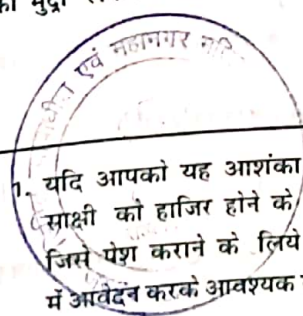 की मुद्रा
एवं महानगर
1. यदि आपको यह आशंका
साक्षी को हाजिर होने के
जिसे पेश कराने के लिये
में आवेदन करके आवश्यक